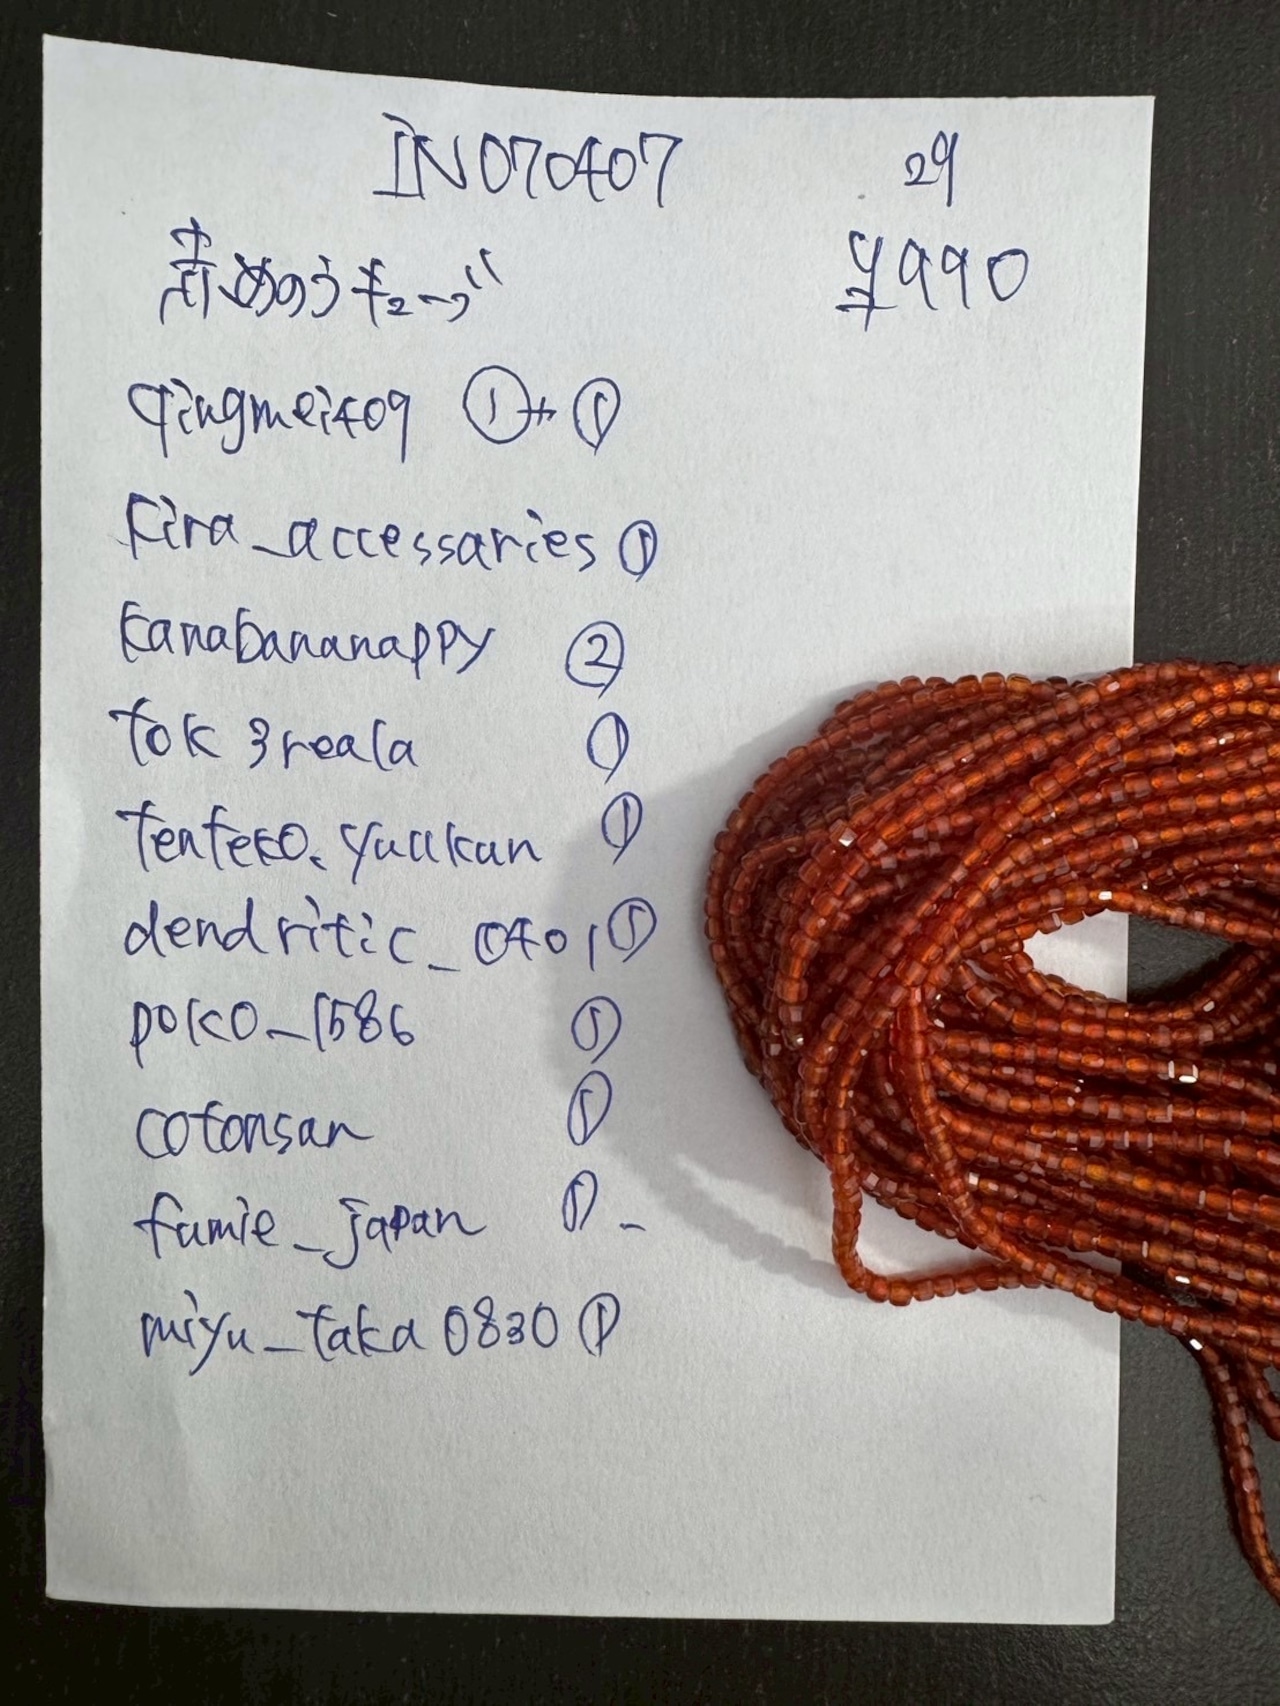 IN070407 29
赤めのうキューブ ¥990
qingmei409 ①+①
kira_accessaries ①
kanabananappy ②
tok3reala ①
tenteko.yuukun ①
dendritic_0401 ①
poko_1586 ①
cotonsan ①
fumie_japan ① -
miyu_taka0830 ①